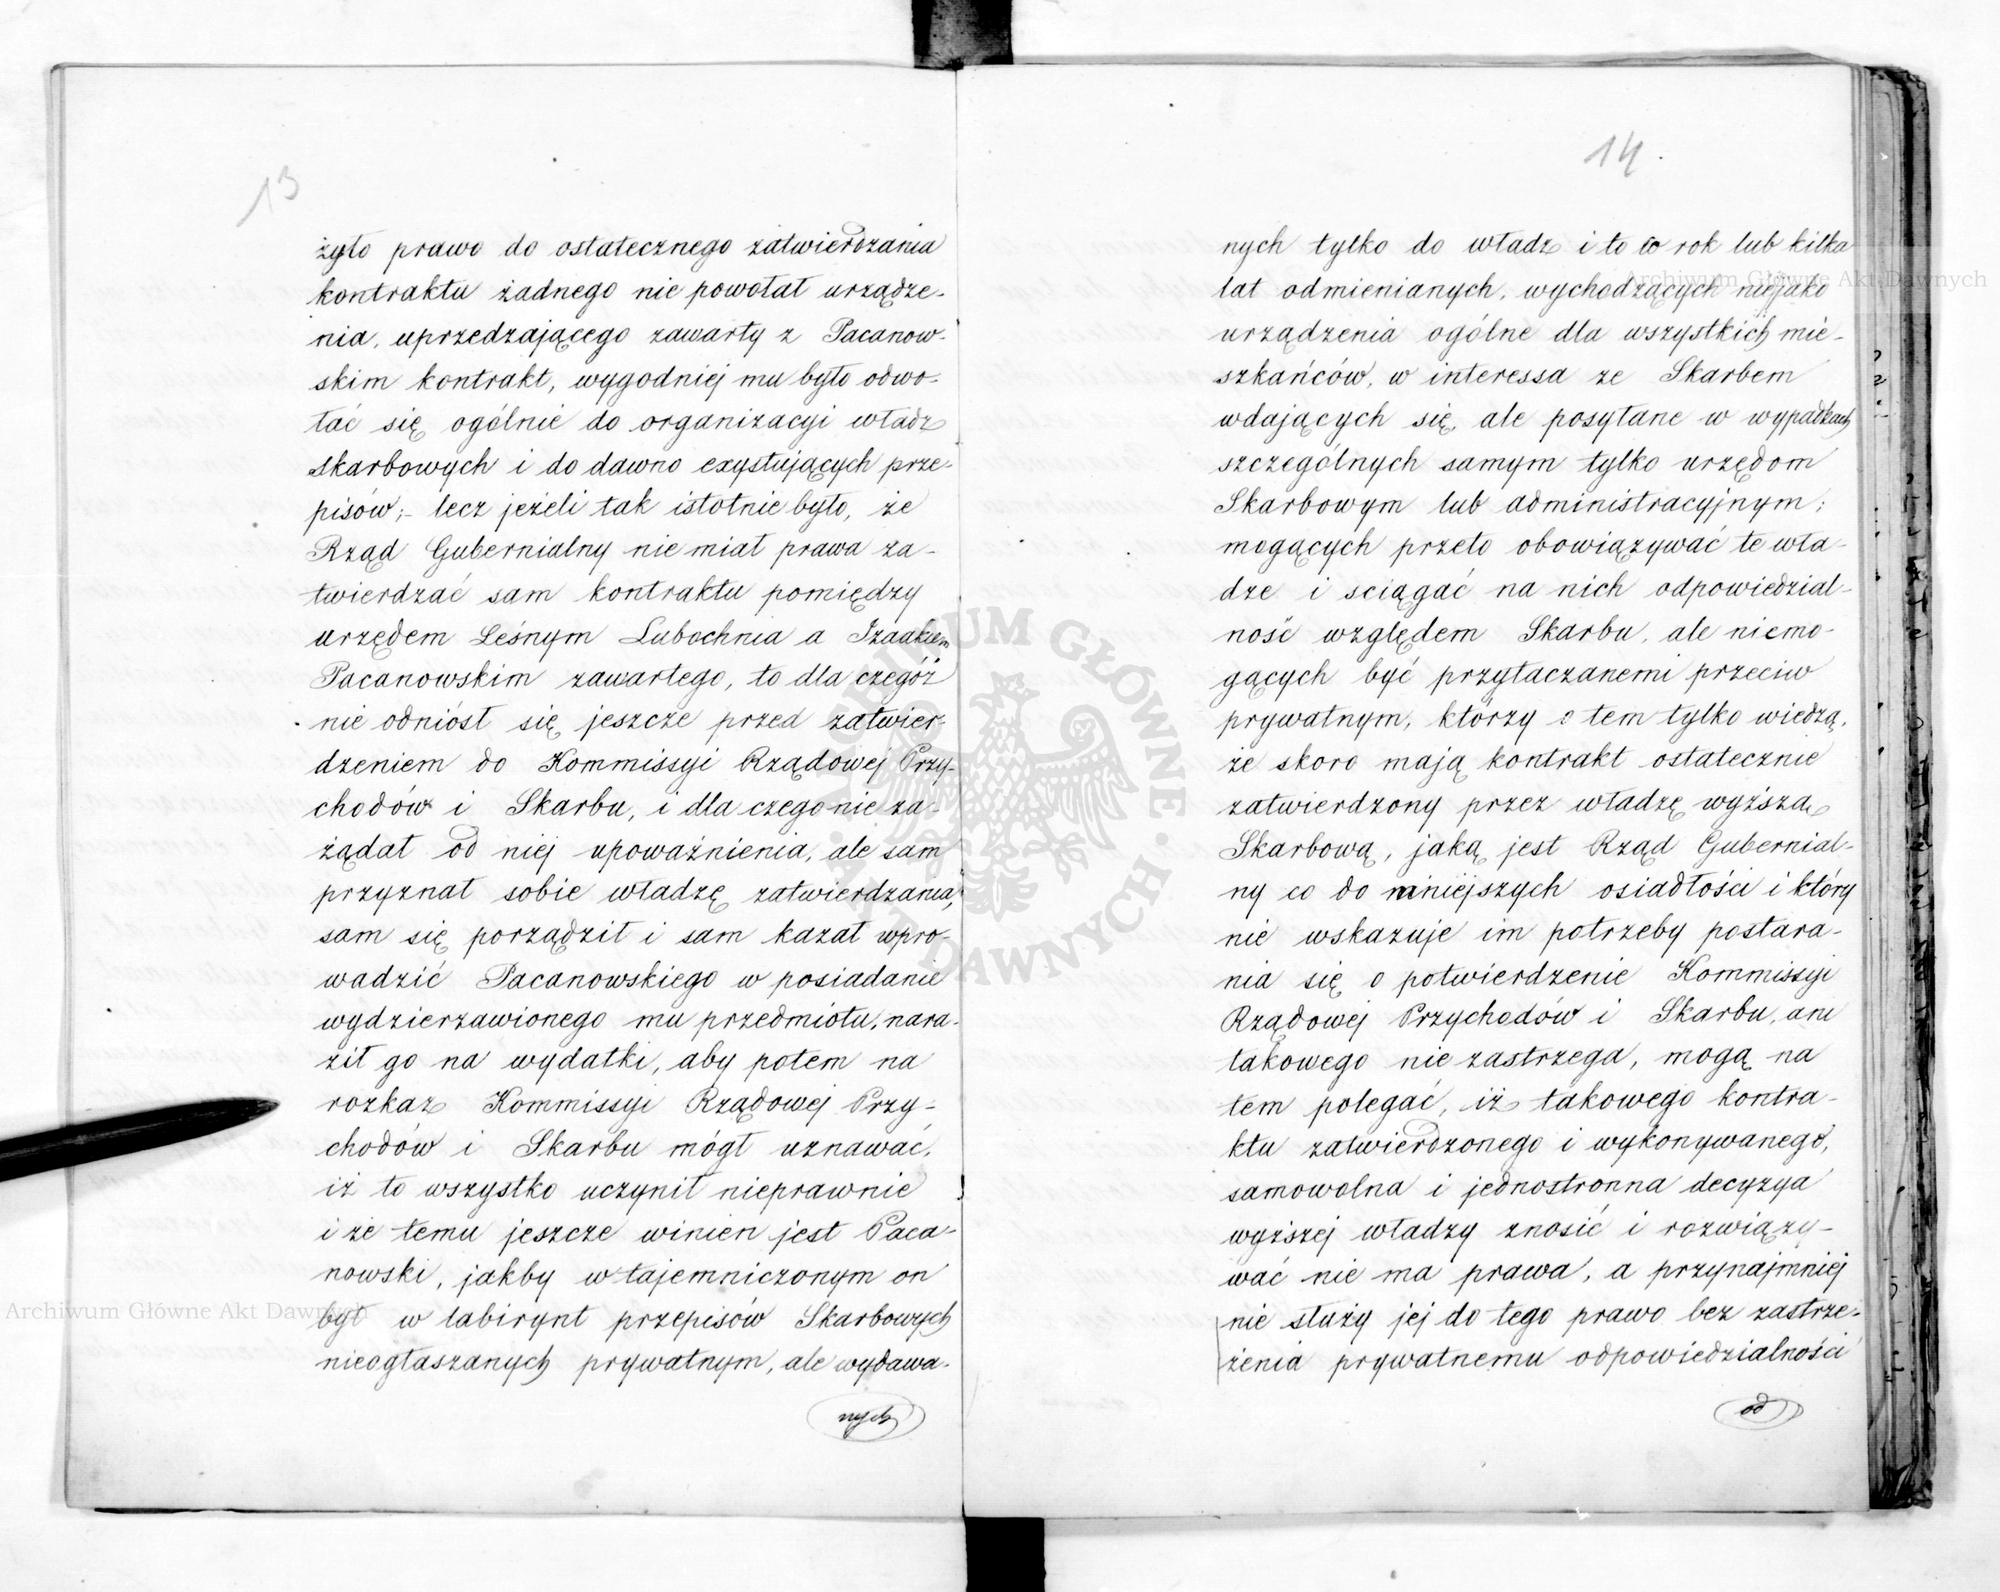 13
żyło prawo do ostatecznego zatwierdzania
kontraktu żadnego nie powołał urządze-
nia, uprzedzającego zawarty z Pacanow-
skim kontrakt, wygodniej mu było odwo-
łać się ogólnie do organizacyi władz
skarbowych i do dawno exystujących prze-
pisów;- lecz jeżeli tak istotnie było, że
Rząd Gubernialny nie miał prawa za-
twierdzać sam kontraktu pomiędzy
urzędem Leśnym Lubochnia a Izaakiem
Pacanowskim zawartego, to dla czegóż
nie odniósł się jeszcze przed zatwier-
dzeniem do Kommissyi Rządowej Przy-
chodów i Skarbu, i dla czego nie za-
żądał od niej upoważnienia, ale sam
przyznał sobie władzę zatwierdzania,
sam się porządził i sam kazał wpro-
wadzić Pacanowskiego w posiadanie
wydzierzawionego mu przedmiotu, nara-
ził go na wydatki, aby potem na
rozkaz Kommissyi Rządowej Przy-
chodów i Skarbu mógł uznawać,
iż to wszystko uczynił nieprawnie
i że temu jeszcze winien jest Paca-
nowski, jakby wtajemniczonym on
był w labirynt przepisów Skarbowych
nieogłaszanych prywatnym, ale wydawa-
nych
14.
nych tylko do władz i to co rok lub kilka
lat odmienianych, wychodzących niejako
urządzenia ogólne dla wszystkich mie-
szkańców, w interessa ze Skarbem
wdających się, ale posyłane w wypadkach
szczególnych samym tylko urzędom
Skarbowym lub administracyjnym;
mogących przeto obowiązywać te wła-
dze i sciągać na nich odpowiedzial-
ność względem Skarbu, ale niemo-
gących być przytaczanemi przeciw
prywatnym, którzy o tem tylko wiedzą,
że skoro mają kontrakt ostatecznie
zatwierdzony przez władzę wyższą
Skarbową, jaką jest Rząd Gubernial-
ny co do mniejszych osiadłości i który
nie wskazuje im potrzeby postara-
nia się o potwierdzenie Kommissyi
Rządowej Przychodów i Skarbu, ani
takowego nie zastrzega, mogą na
tem polegać, iż takowego kontra-
ktu zatwierdzonego i wykonywanego,
samowolna i jednostronna decyzya
wyższej władzy znosić i rozwiązy-
wać nie ma prawa, a przynajmniej
nie służy jej do tego prawo bez zastrze-
żenia prywatnemu odpowiedzialności
od
Archiwum Główne Akt Dawnych
Archiwum Główne Akt Dawnych
ARCHIWUM GŁÓWNE AKT DAWNYCH